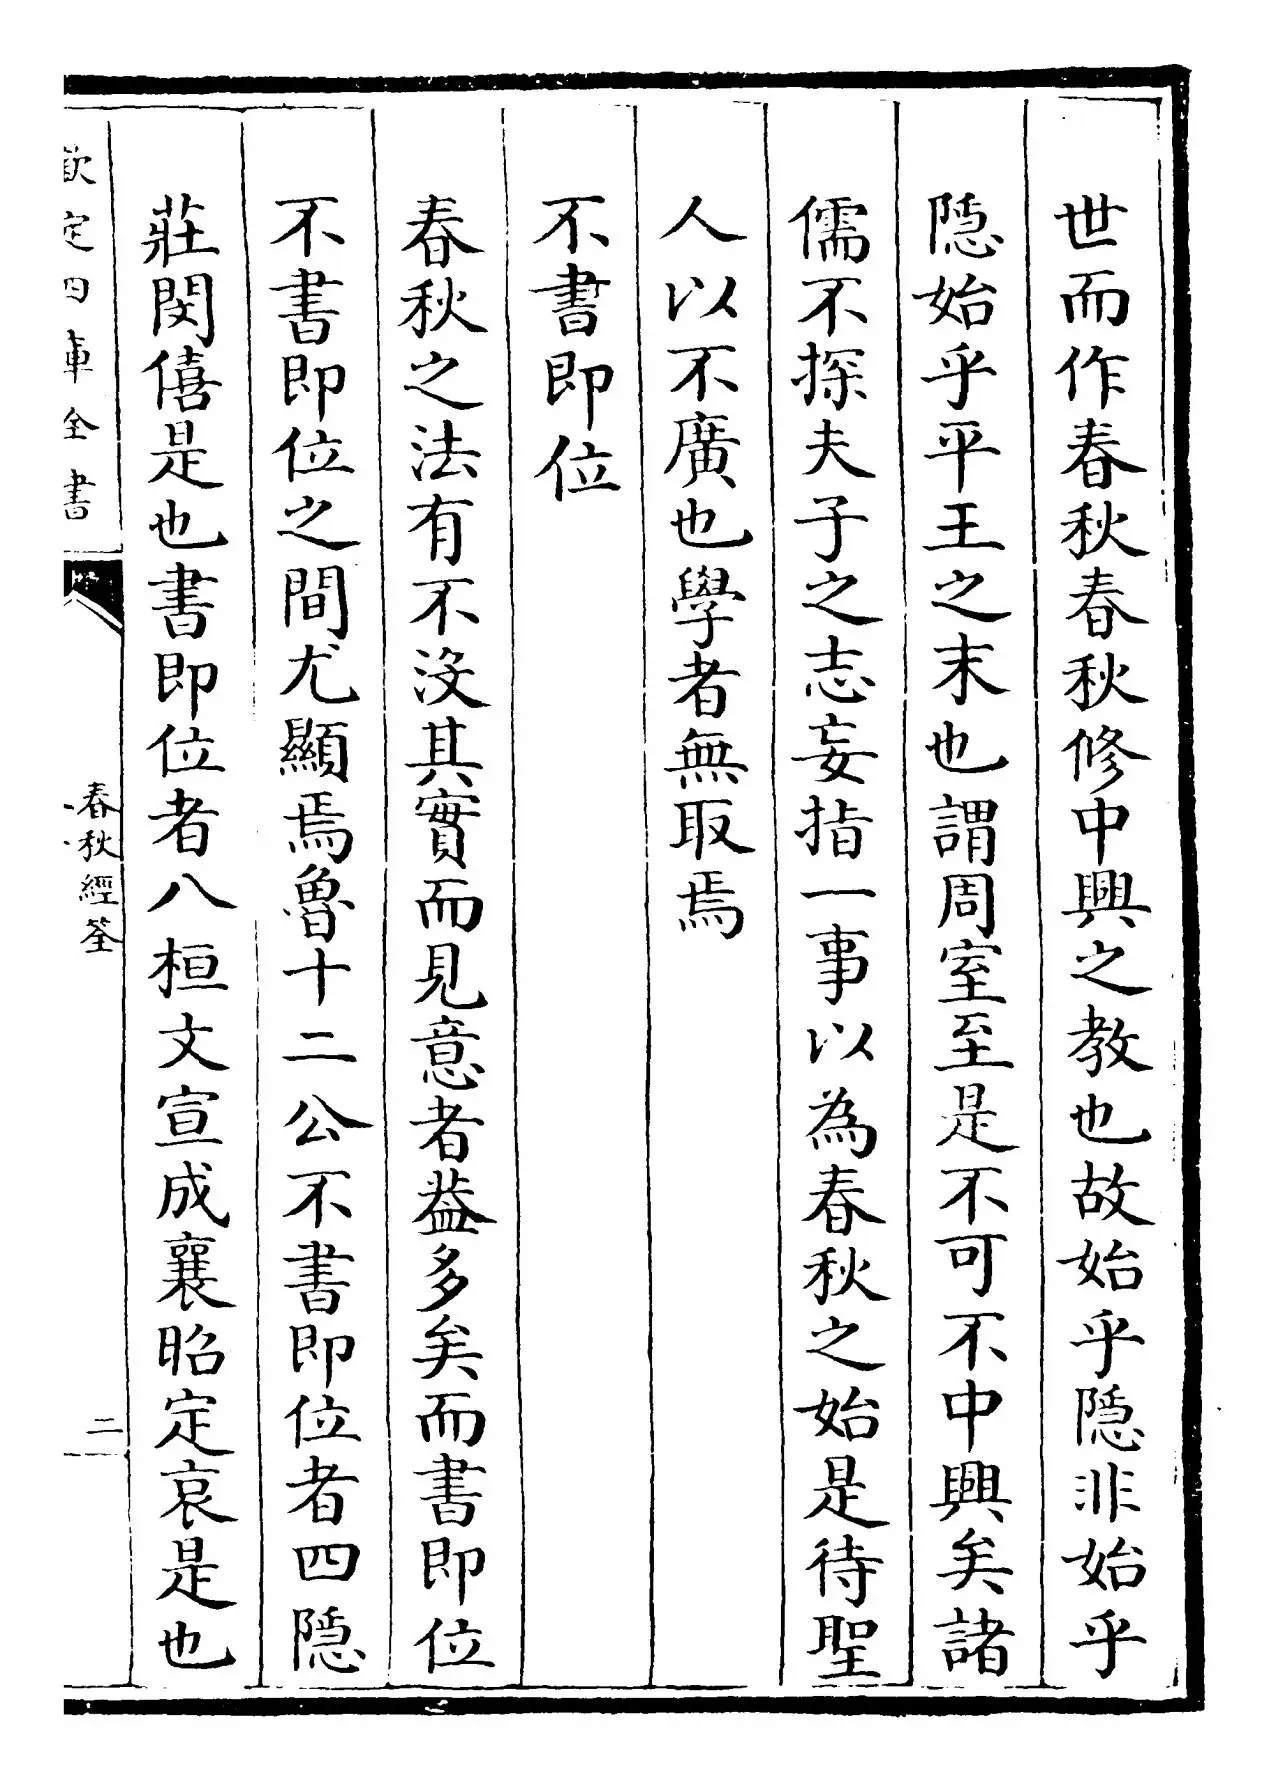 世而作春秋春秋修中興之教也故始乎隠非始乎
隠始乎平王之末也謂周室至是不可不中興矣諸
儒不探夫子之志妄指一事以為春秋之始是待聖
人以不廣也學者無取焉
不書即位
春秋之法有不没其實而見意者葢多矣而書即位
不書即位之間尤顯焉魯十二公不書即位者四隠
莊閔僖是也書即位者八桓文宣成襄昭定哀是也
欽定四庫全書
春秋經筌
二